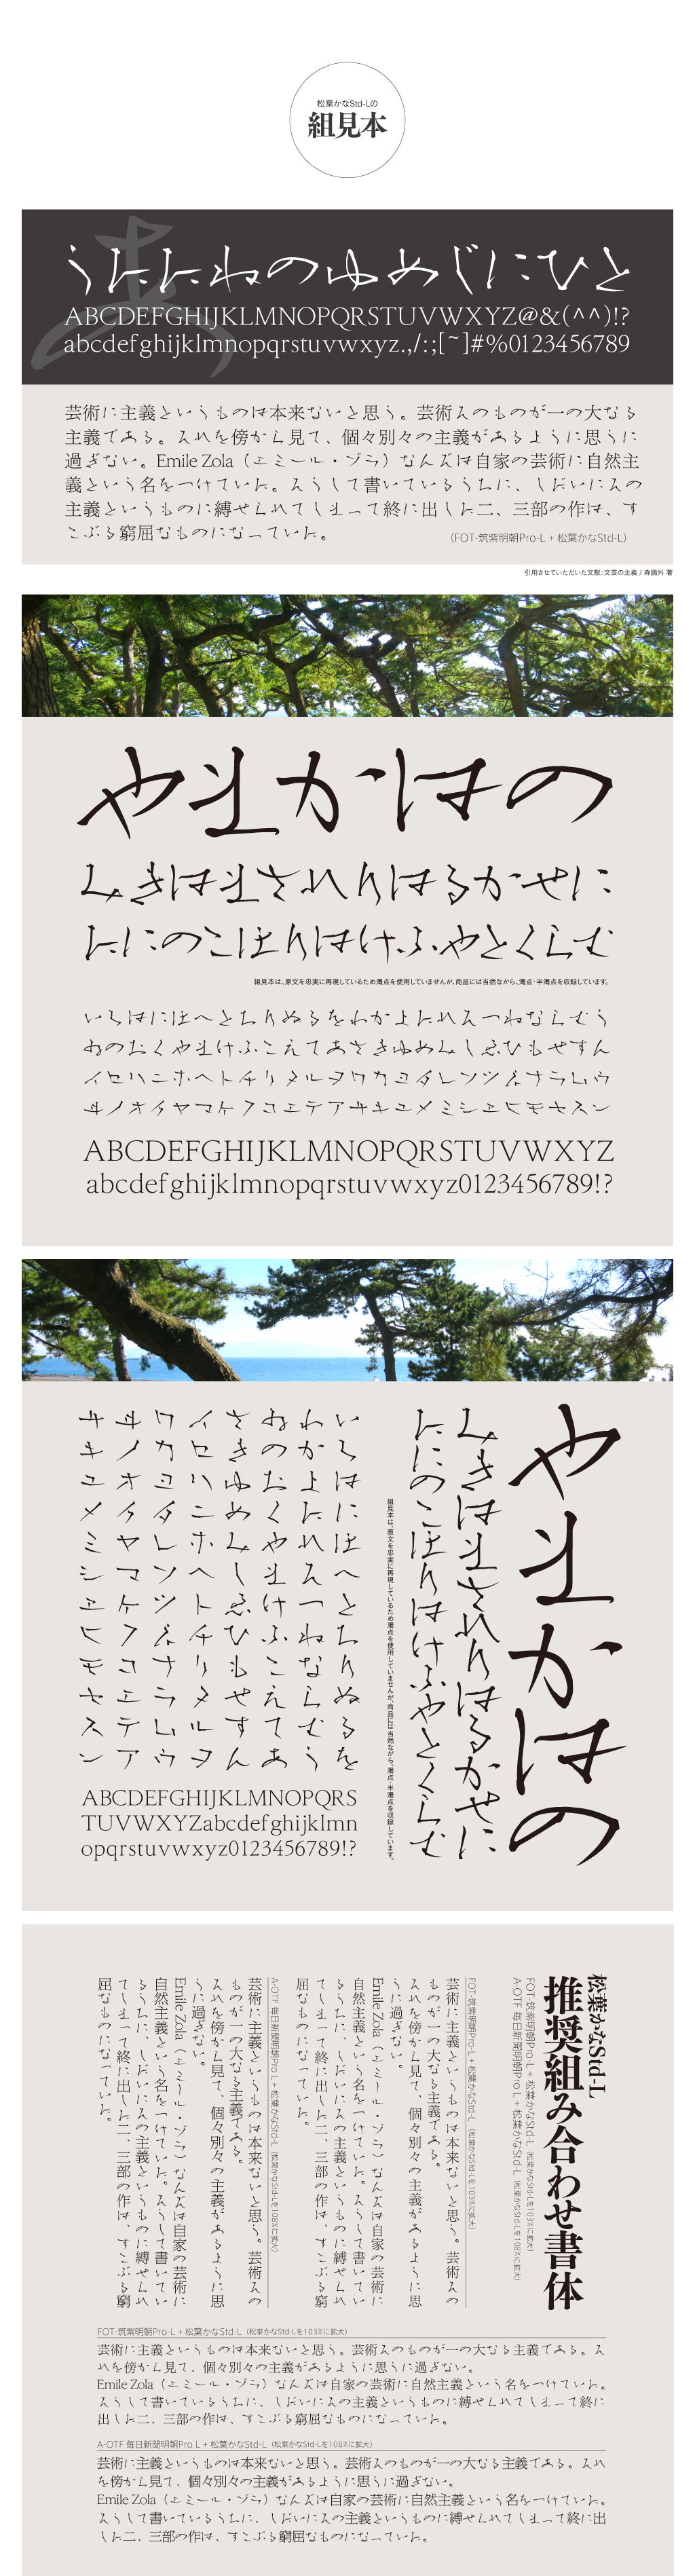 松葉かなStd-Lの
組見本
うたたねのゆめじにひと
ABCDEFGHIJKLMNOPQRSTUVWXYZ@&(^^)!?
abcdefghijklmnopqrstuvwxyz.,/:;[~]#%0123456789
芸術に主義というものは本来ないと思う。芸術そのものが一の大なる
主義である。それを傍から見て、個々別々の主義があるように思うに
過ぎない。Emile Zola（エミール・ゾラ）なんぞは自家の芸術に自然主
義という名をつけていた。そうして書いているうちに、しだいにその
主義というものに縛せられてしまって終に出した二、三部の作は、す
こぶる窮屈なものになっていた。
（FOT-筑紫明朝Pro-L + 松葉かなStd-L）
引用させていただいた文献：文芸の主義 / 森鷗外 著
やまかはの
みきはまされりはるかせに
たにのこほりはけふやとくらむ
組見本は、原文を忠実に再現しているため濁点を使用していませんが、商品には当然ながら、濁点・半濁点を収録しています。
いろはにほへとちりぬるをわかよたれそつねならむう
ゐのおくやまけふこえてあさきゆめみしゑひもせすん
イロハニホヘトチリヌルヲワカヨタレソツネナラムウ
ヰノオクヤマケフコエテアサキユメミシヱヒモセスン
ABCDEFGHIJKLMNOPQRSTUVWXYZ
abcdefghijklmnopqrstuvwxyz0123456789!?
やまかはの
みきはまされりはるかせに
たにのこほりはけふやとくらむ
組見本は、原文を忠実に再現しているため濁点を使用していませんが、商品には当然ながら、濁点・半濁点を収録しています。
いろはにほへとちりぬるを
わかよたれそつねならむう
ゐのおくやまけふこえてあ
さきゆめみしゑひもせすん
イロハニホヘトチリヌルヲ
ワカヨタレソツネナラムウ
ヰノオクヤマケフコエテア
サキユメミシヱヒモセスン
ABCDEFGHIJKLMNOPQRS
TUVWXYZabcdefghijklmn
opqrstuvwxyz0123456789!?
松葉かなStd-L
推奨組み合わせ書体
FOT-筑紫明朝Pro-L + 松葉かなStd-L（松葉かなStd-Lを103%に拡大）
A-OTF 毎日新聞明朝Pro L + 松葉かなStd-L（松葉かなStd-Lを108%に拡大）
FOT-筑紫明朝Pro-L + 松葉かなStd-L（松葉かなStd-Lを103%に拡大）
芸術に主義というものは本来ないと思う。芸術その
ものが一の大なる主義である。
それを傍から見て、個々別々の主義があるように思
うに過ぎない。
Emile Zola（エミール・ゾラ）なんぞは自家の芸術に
自然主義という名をつけていた。そうして書いてい
るうちに、しだいにその主義というものに縛せられ
てしまって終に出した二、三部の作は、すこぶる窮
屈なものになっていた。
A-OTF 毎日新聞明朝Pro L + 松葉かなStd-L（松葉かなStd-Lを108%に拡大）
芸術に主義というものは本来ないと思う。芸術その
ものが一の大なる主義である。
それを傍から見て、個々別々の主義があるように思
うに過ぎない。
Emile Zola（エミール・ゾラ）なんぞは自家の芸術に
自然主義という名をつけていた。そうして書いてい
るうちに、しだいにその主義というものに縛せられ
てしまって終に出した二、三部の作は、すこぶる窮
屈なものになっていた。
FOT-筑紫明朝Pro-L + 松葉かなStd-L（松葉かなStd-Lを103%に拡大）
芸術に主義というものは本来ないと思う。芸術そのものが一の大なる主義である。そ
れを傍から見て、個々別々の主義があるように思うに過ぎない。
Emile Zola（エミール・ゾラ）なんぞは自家の芸術に自然主義という名をつけていた。
そうして書いているうちに、しだいにその主義というものに縛せられてしまって終に
出した二、三部の作は、すこぶる窮屈なものになっていた。
A-OTF 毎日新聞明朝Pro L + 松葉かなStd-L（松葉かなStd-Lを108%に拡大）
芸術に主義というものは本来ないと思う。芸術そのものが一の大なる主義である。それ
を傍から見て、個々別々の主義があるように思うに過ぎない。
Emile Zola（エミール・ゾラ）なんぞは自家の芸術に自然主義という名をつけていた。
そうして書いているうちに、しだいにその主義というものに縛せられてしまって終に出
した二、三部の作は、すこぶる窮屈なものになっていた。